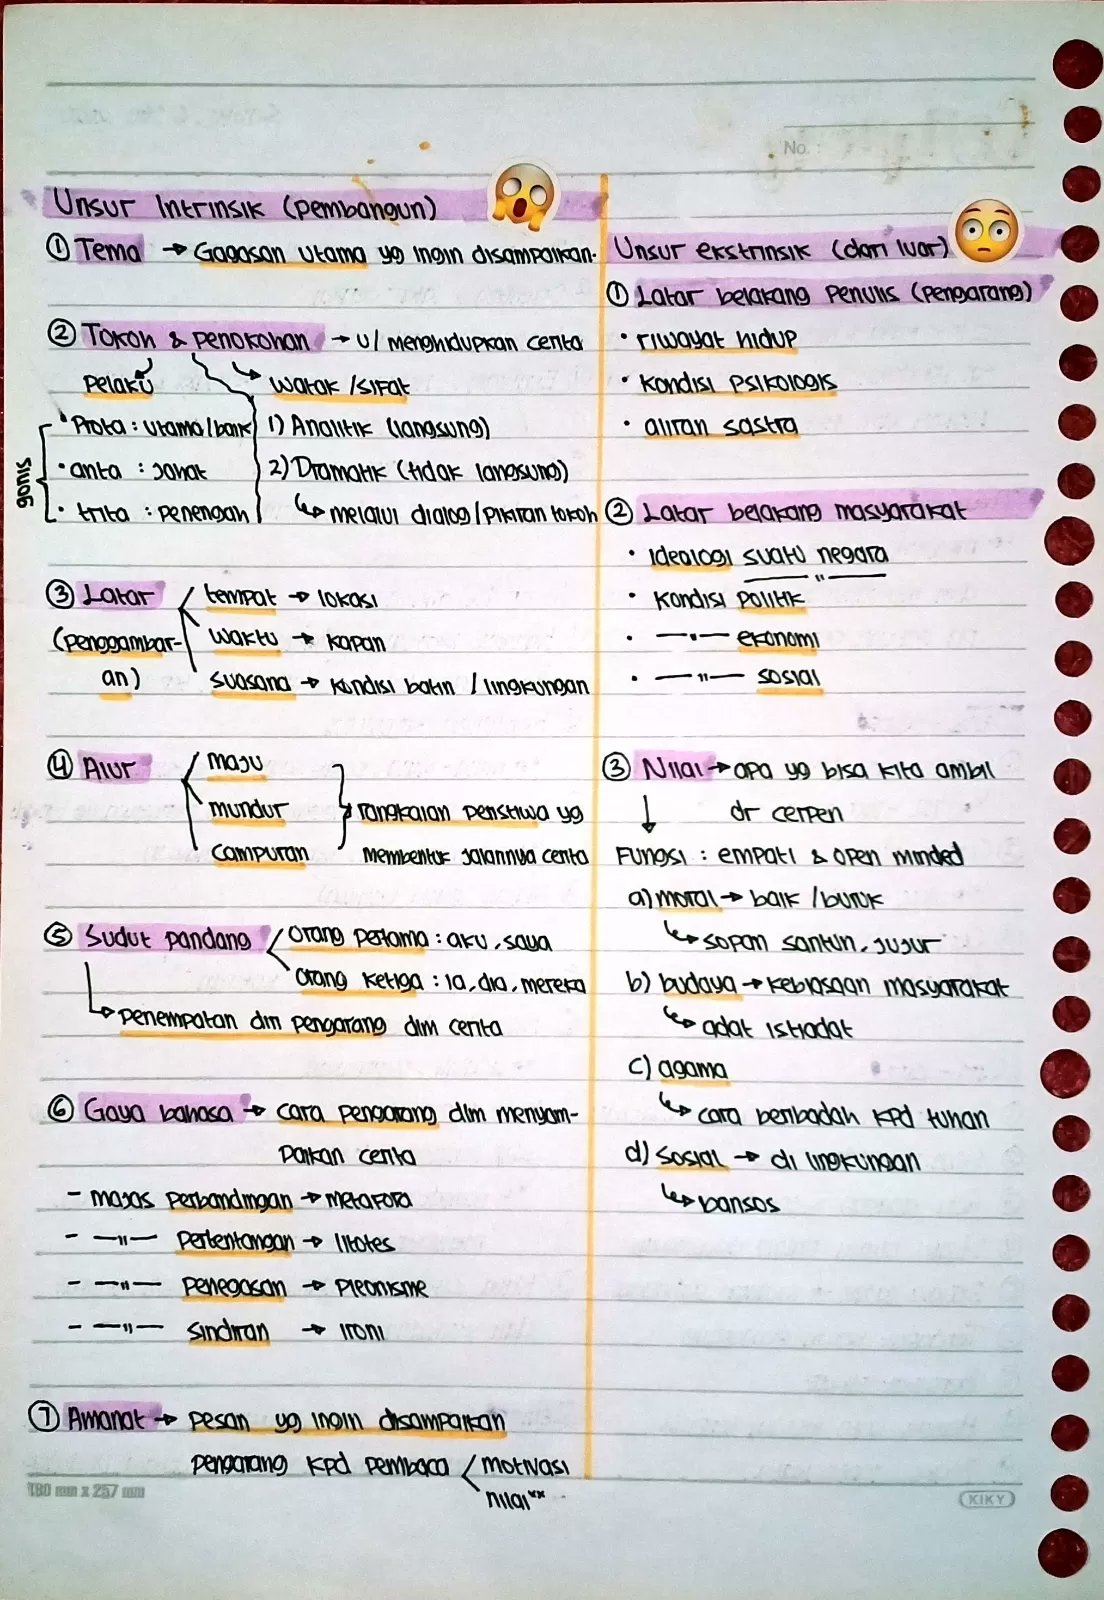 No. :
Unsur Intrinsik (pembangun)
① Tema → Gagasan utama yg ingin disampaikan.
② Tokoh & penokohan → u/ menghidupkan cerita
pelaku
watak / sifat
gonis
• Prota : utama/baik
• anta : jahat
• trita : penengah
1) Analitik (langsung)
2) Dramatik (tidak langsung)
↳ melalui dialog/pikiran tokoh
③ Latar
(penggambar-
an)
tempat → lokasi
waktu → kapan
suasana → kondisi batin / lingkungan
④ Alur
maju
mundur
campuran
rangkaian peristiwa yg
membentuk jalannya cerita
⑤ Sudut pandang
orang pertama : aku, saya
orang ketiga : ia, dia, mereka
↳ penempatan diri pengarang dlm cerita
⑥ Gaya bahasa → cara pengarang dlm menyam-
paikan cerita
- majas perbandingan → metafora
- —"— pertentangan → litotes
- —"— penegasan → pleonisme
- —"— sindiran → ironi
⑦ Amanat → pesan yg ingin disampaikan
pengarang kpd pembaca
motivasi
nilai"
Unsur ekstrinsik (dari luar)
① Latar belakang penulis (pengarang)
• riwayat hidup
• kondisi psikologis
• aliran sastra
② Latar belakang masyarakat
• Ideologi suatu negara
—"—
• kondisi politik
• —"— ekonomi
• —"— sosial
③ Nilai → apa yg bisa kita ambil
dr cerpen
Fungsi : empati & open minded
a) moral → baik / buruk
↳ sopan santun, jujur
b) budaya → kebiasaan masyarakat
↳ adat istiadat
c) agama
↳ cara beribadah kpd tuhan
d) sosial → di lingkungan
↳ bansos
180 mm x 257 mm
KIKY